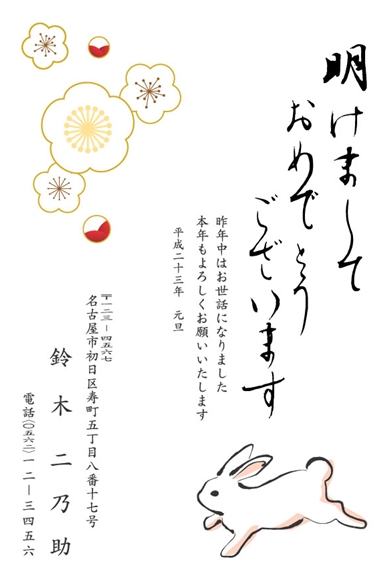 明けまして
おめでとう
ございます
昨年中はお世話になりました
本年もよろしくお願いいたします
平成二十三年 元旦
〒一二三－四五六七
名古屋市初日区寿町五丁目八番十七号
鈴木二乃助
電話(〇五六二)一二－三四五六